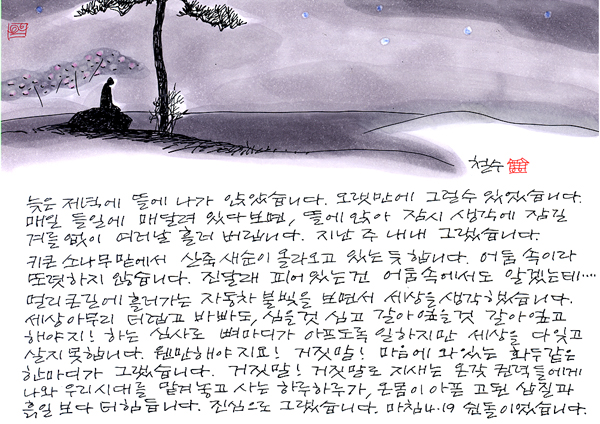 철수
늦은 저녁에 뜰에 나가 앉았습니다. 오랫만에 그럴수 있었습니다.
매일 들일에 매달려 있다보면, 뜰에 앉아 잠시 생각에 잠길
겨를 없이 여러날 흘러 버립니다. 지난 주 내내 그랬습니다.
키큰 소나무 밑에서 산죽 새순이 올라오고 있는 듯 합니다. 어둠 속이라
또렷하지 않습니다. 진달래 피어있는건 어둠속에서도 알겠는데....
멀리 큰길에 흘러가는 자동차 불빛을 보면서 세상을 생각했습니다.
세상 아무리 더럽고 바빠도, 심을것 심고 갈아엎을것 갈아엎고
해야지! 하는 심사로 뼈마디가 아프도록 일하지만 세상을 다 잊고
살지 못합니다. 웬만해야지요! 거짓말! 마음에 와있는 화두같은
한마디가 그랬습니다. 거짓말! 거짓말로 지새는 온갖 권력들에게
나와 우리시대를 맡겨놓고 사는 하루하루가, 온몸이 아픈 고된 삽질과
흙일 보다 더 힘듭니다. 진심으로 그랬습니다. 마침 4.19 쉰돌이었습니다.